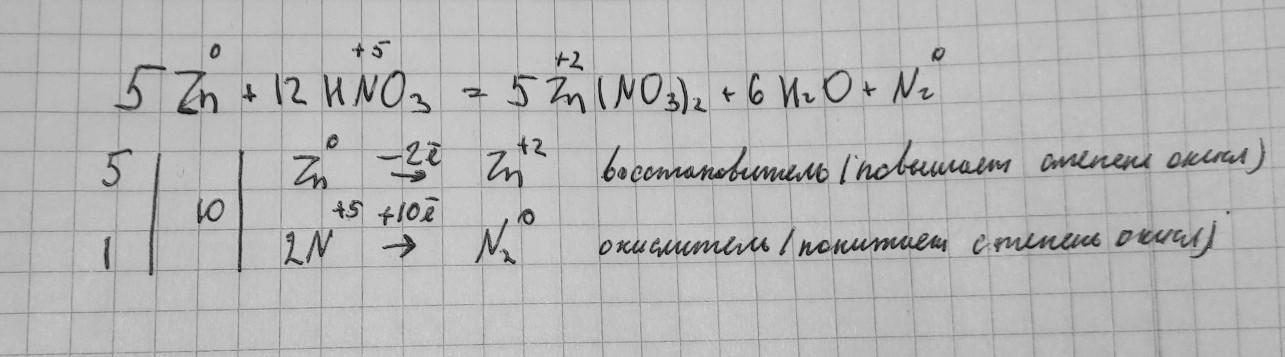 5 Zn⁰ + 12 HN⁺⁵O₃ = 5 Zn⁺²(NO₃)₂ + 6 H₂O + N₂⁰
5 | | Zn⁰ −2ē → Zn⁺² восстановитель (повышает степень окисл)
10
1 | | 2N⁺⁵ +10ē → N₂⁰ окислитель (понижает степень окисл)